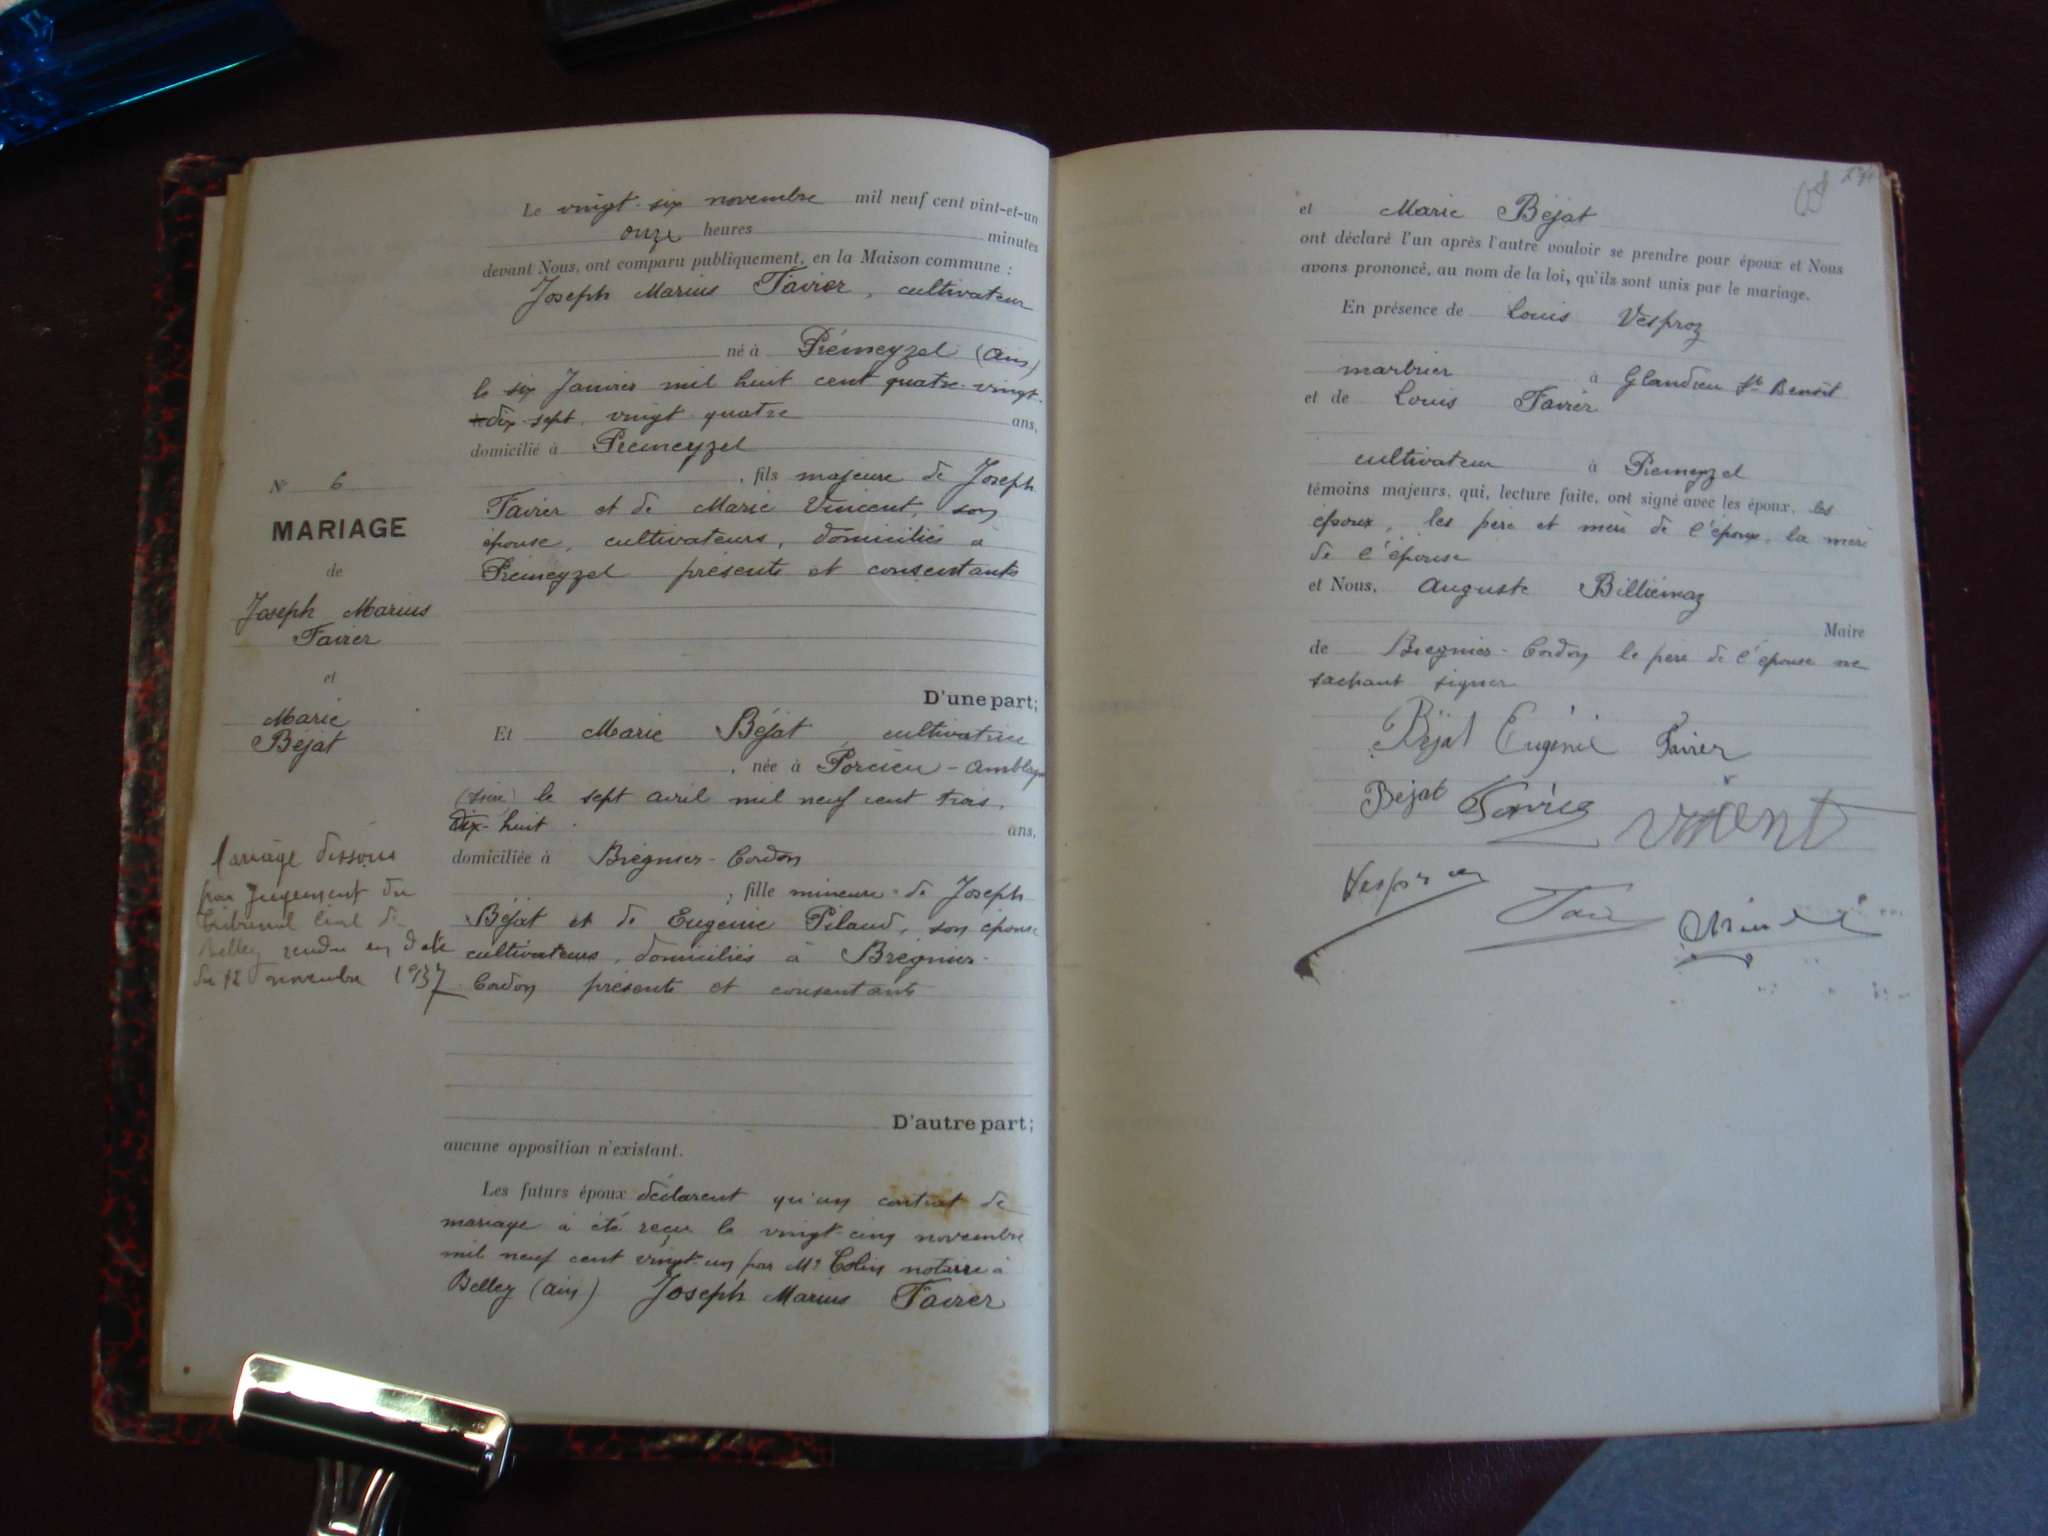 N° 6
MARIAGE
de
Joseph Marius
Favier
et
Marie
Béjat
Mariage dissous
par jugement du
tribunal civil de
Belley rendu en date
du 12 novembre 1937
Le vingt-six novembre mil neuf cent vint-et-un
onze heures minutes
devant Nous, ont comparu publiquement, en la Maison commune :
Joseph Marius Favier, cultivateur
né à Prémeyzel (Ain)
le six Janvier mil huit cent quatre-vingt-
dix-sept, vingt-quatre ans,
domicilié à Prémeyzel
, fils majeure de Joseph
Favier et de Marie Vincent, son
épouse, cultivateurs, domiciliés à
Prémeyzel présents et consentants
D'une part;
Et Marie Béjat, cultivatrice
, née à Porcieu-Amblagn
(Isère) le sept avril mil neuf cent trois,
dix-huit ans,
domiciliée à Brégnier-Cordon
, fille mineure de Joseph
Béjat et de Eugenie Pilaud, son épouse
cultivateurs, domiciliés à Brégnier-
Cordon présents et consentants
D'autre part;
aucune opposition n'existant.
Les futurs époux déclarent qu'un contrat de
mariage a été reçu le vingt-cinq novembre
mil neuf cent vingt-un par Me Colin notaire à
Belley (Ain) Joseph Marius Favier
et Marie Béjat
ont déclaré l'un après l'autre vouloir se prendre pour époux et Nous
avons prononcé, au nom de la loi, qu'ils sont unis par le mariage.
En présence de Louis Vesproz
marbrier à Glandieu St Benoît
et de Louis Favier
cultivateur à Prémeyzel
témoins majeurs, qui, lecture faite, ont signé avec les époux, les
époux, les père et mère de l'époux, la mère
de l'épouse
et Nous, Auguste Billiémaz
Maire
de Brégnier-Cordon le père de l'épouse ne
sachant signer
Béjat Eugénie Favier
Béjat Favier